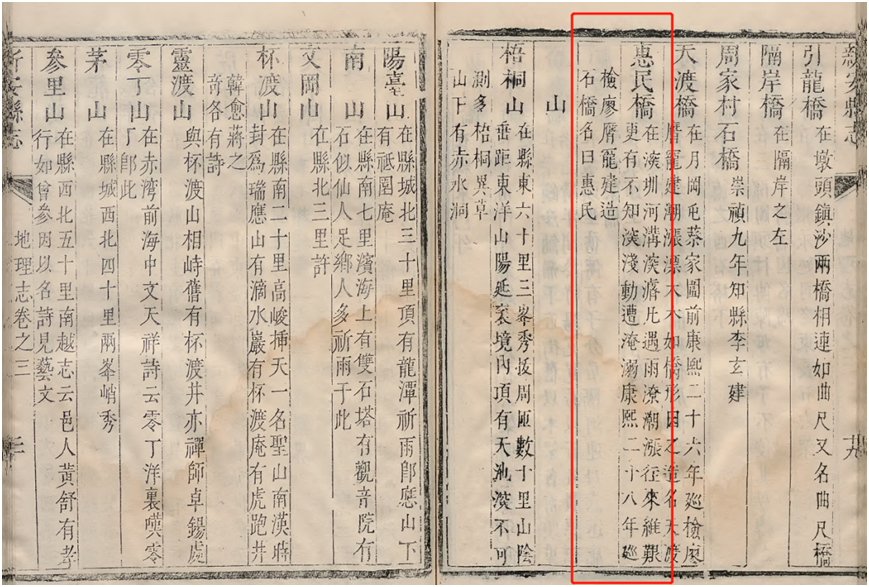 新安縣志
引龍橋 在墩頭鎮沙兩橋相連如曲尺又名曲尺橋
隔岸橋 在隔岸之左
周家村石橋 崇禎九年知縣李玄建
天渡橋 在月岡屯蔡家圍前康熙二十六年廵檢廖
膺寵建潮漲漂大木如橋形因之造名天渡
惠民橋 在深圳河溝深濶凡遇雨潦潮漲往來維艱
更有不知淺深動遭淹溺康熙二十八年廵
檢廖膺寵建造
石橋名曰惠民
山
梧桐山 在縣東六十里三峯秀拔周匝數十里山陰
垂距東洋山陽延袤境內頂有天池深不可
測多梧桐異草
山下有赤水洞
陽臺山 在縣城北三十里頂有龍潭祈雨卽應山下
有祗園庵
南山 在縣南七里濱海上有雙石塔有觀音院有
石似仙人足鄉人多祈雨于此
文岡山 在縣北三里許
杯渡山 在縣南二十里高峻揷天一名聖山南漢時
封爲瑞應山有滴水巖有杯渡庵有虎跑井
韓愈蔣之
奇各有詩
靈渡山 與杯渡山相峙舊有杯渡井亦禪師卓錫處
零丁山 在赤灣前海中文天祥詩云零丁洋裏嘆零
丁卽此
茅山 在縣城西北四十里兩峯峭秀
參里山 在縣西北五十里南越志云邑人黃舒有孝
行如曾參因以名詩見藝文
新安縣志 地理志卷之三